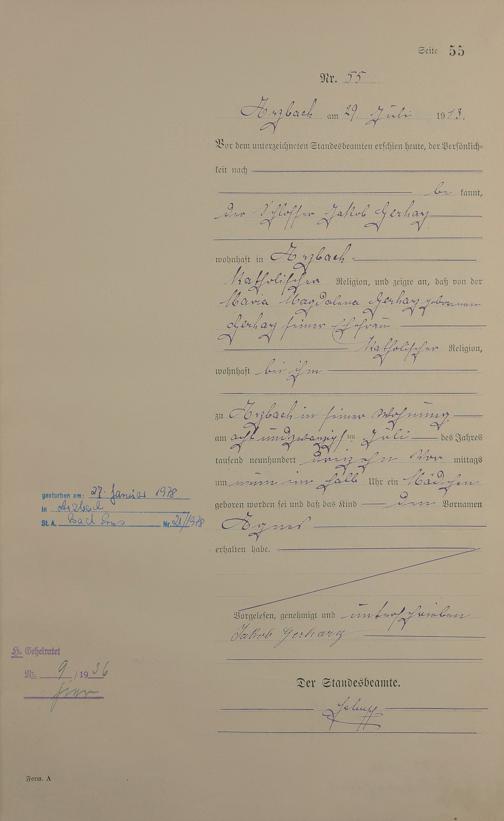 Seite 55
Nr. 55
Arzbach am 29 Juli 1913.
Vor dem unterzeichneten Standesbeamten erschien heute, der Persönlich-
keit nach
be kannt,
der Schlosser Jakob Gerharz
wohnhaft in Arzbach
katholischer Religion, und zeigte an, daß von der
Maria Magdalena Gerharz geborenen
Gerharz seiner Ehefrau
katholischer Religion,
wohnhaft bei ihm
zu Arzbach in seiner Wohnung
am acht und zwanzigsten Juli des Jahres
tausend neunhundert dreizehn Vor mittags
um neun ein halb Uhr ein Mädchen
geboren worden sei und daß das Kind den Vornamen
Agnes
erhalten habe.
Vorgelesen, genehmigt und unterschrieben
Jakob Gerharz
Der Standesbeamte.
gestorben am: 27. Januar 1978
in Arzbach
St. A. Bad Ems Nr. 21/1978
Geheiratet
Nr. 9 / 1936
hier
Form. A